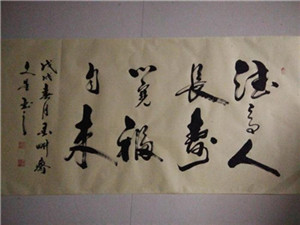 德高人
長壽
心寬福
自來
戊戌春月